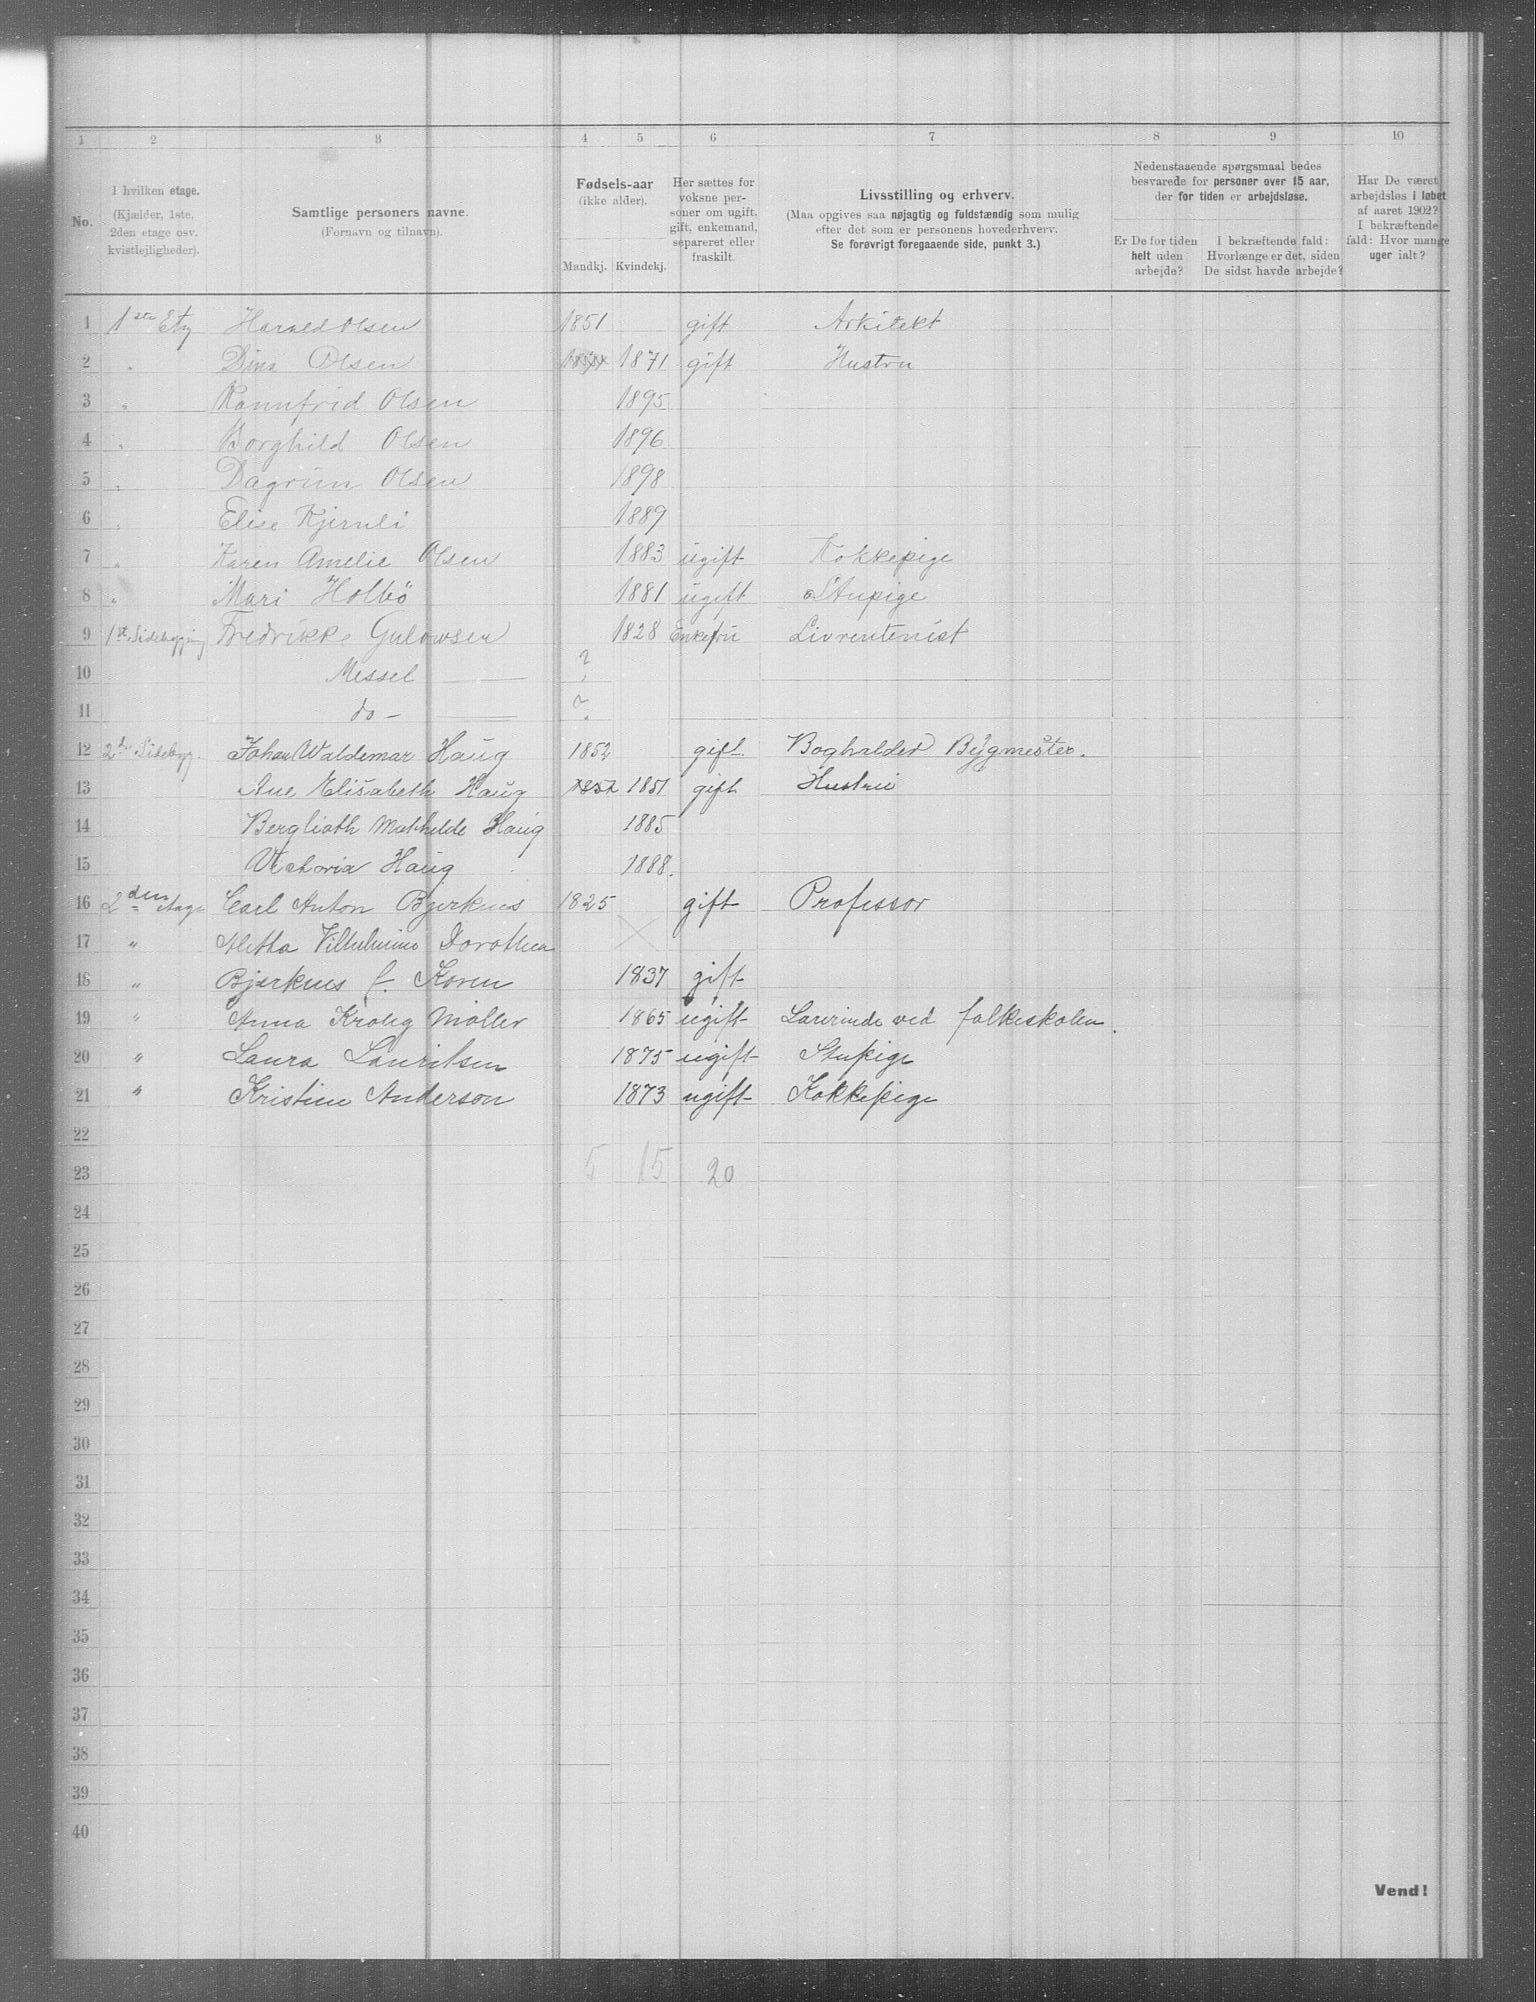 1 2 3 4 5 6 7 8 9 10
No. I hvilken etage. (Kjælder, 1ste, 2den etage osv. kvistlejligheder).
Samtlige personers navne.
(Fornavn og tilnavn).
Fødsels-aar
(ikke alder).
Mandkj. Kvindekj.
Her sættes for
voksne per-
soner om ugift,
gift, enkemand,
separeret eller
fraskilt.
Livsstilling og erhverv.
(Maa opgives saa nøjagtig og fuldstændig som mulig
efter det som er personens hovederhverv.
Se forøvrigt foregaaende side, punkt 3.)
Nedenstaaende spørgsmaal bedes
besvarede for personer over 15 aar,
der for tiden er arbejdsløse.
Er De for tiden
helt uden
arbejde?
I bekræftende fald:
Hvorlænge er det, siden
De sidst havde arbejde?
Har De været
arbejdsløs i løbet
af aaret 1902?
I bekræftende
fald: Hvor mange
uger ialt?
1 1ste Etg Harald Olsen 1851 gift Arkitekt
2 " Dina Olsen 1871 gift Hustru
3 " Rannfrid Olsen 1895
4 " Borghild Olsen 1896
5 " Dagrun Olsen 1898
6 " Elise Kjernli 1889
7 " Karen Amelie Olsen 1883 ugift Kokkepige
8 " Mari Holbö 1881 ugift Stupige
9 1st. Sidebygning Fredrikke Gulowsen 1828 Enkefru Livrentenist
10 Messel ?
11 do - ?
12 2den Sidebyg. Johan Waldemar Haug 1852 gift. Boghalder Bygmester.
13 Ane Elisabeth Haug 1852 1851 gift Hustru
14 Berglioth Mathilde Haug 1885
15 Victoria Haug 1888.
16 2den etage Carl Anton Bjerknes 1825 gift Professor
17 " Aletta Vilhelmine Dorothea
18 " Bjerknes f. Koren 1837 gift
19 " Anna Krohg Møller 1865 ugift Lærerinde ved folkeskolen.
20 " Laura Lauritsen 1875 ugift Stupige
21 " Kristine Anderson 1873 ugift Kokkepige
22
23 5 15 20
24
25
26
27
28
29
30
31
32
33
34
35
36
37
38
39
40
Vend!